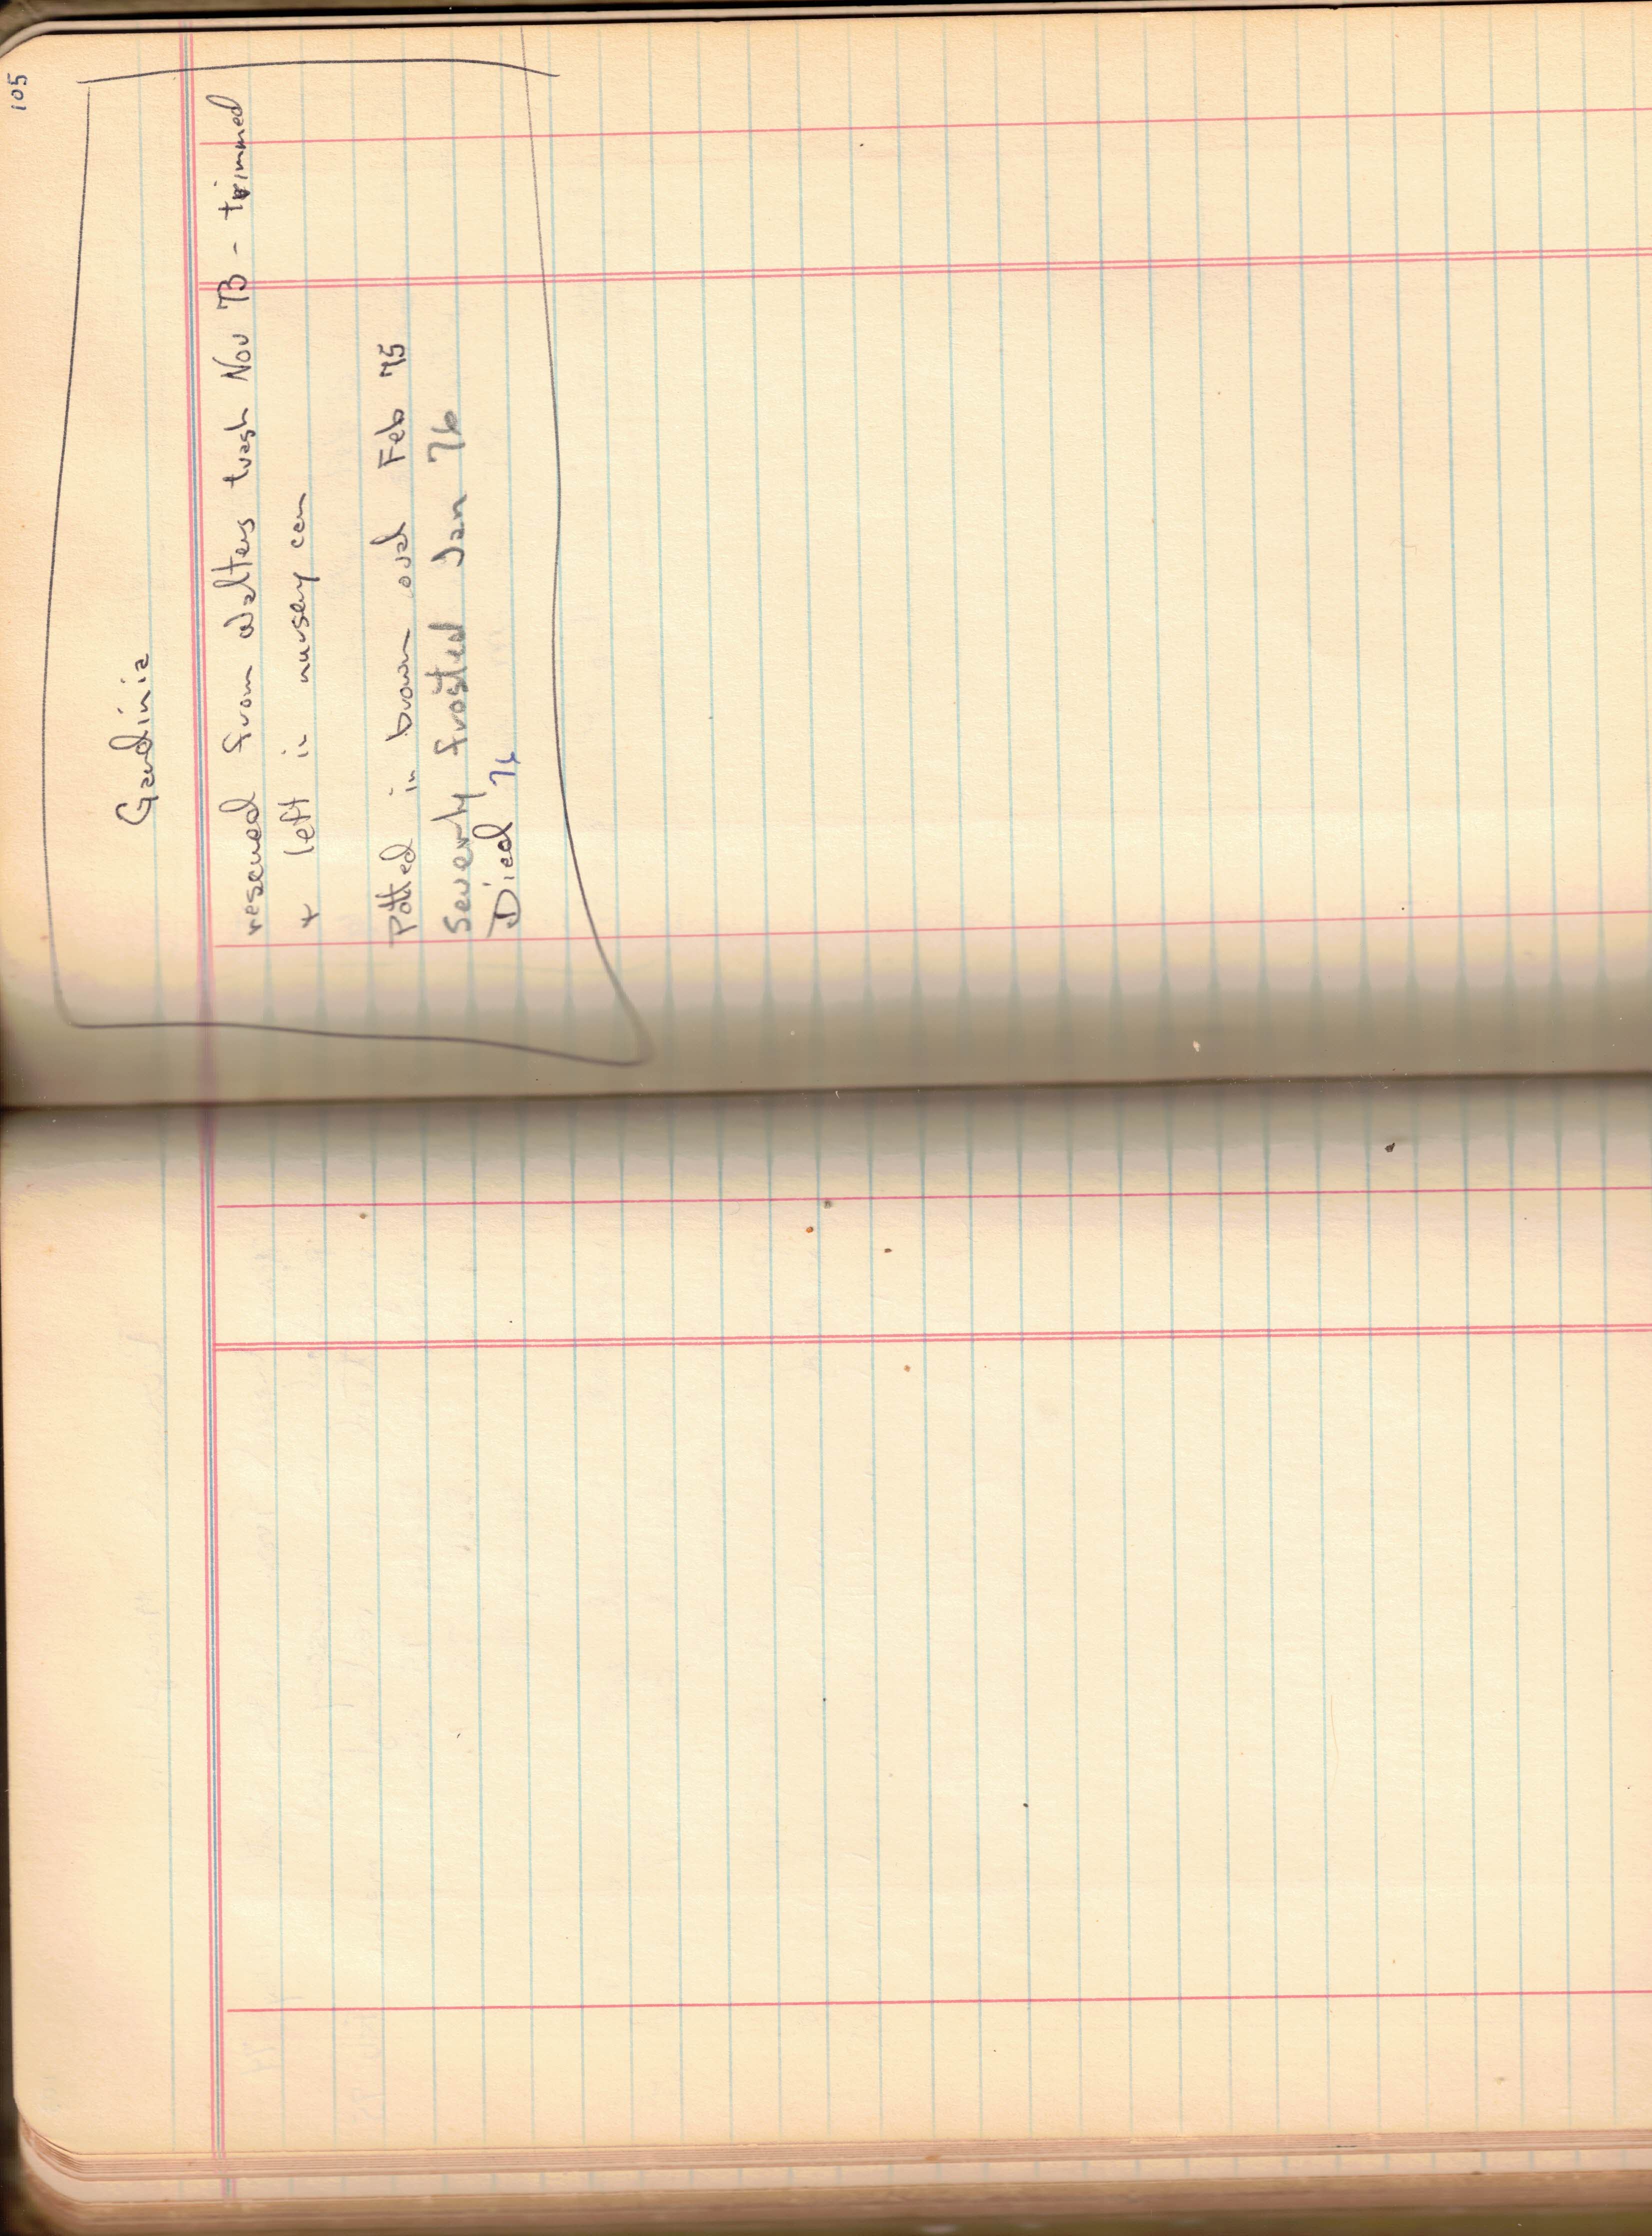 105
Gardinia
rescued from Walters trash Nov 73 - trimmed
+ left in nursery can
Potted in brown oval Feb 75
Severly frosted Jan 76
Died 76